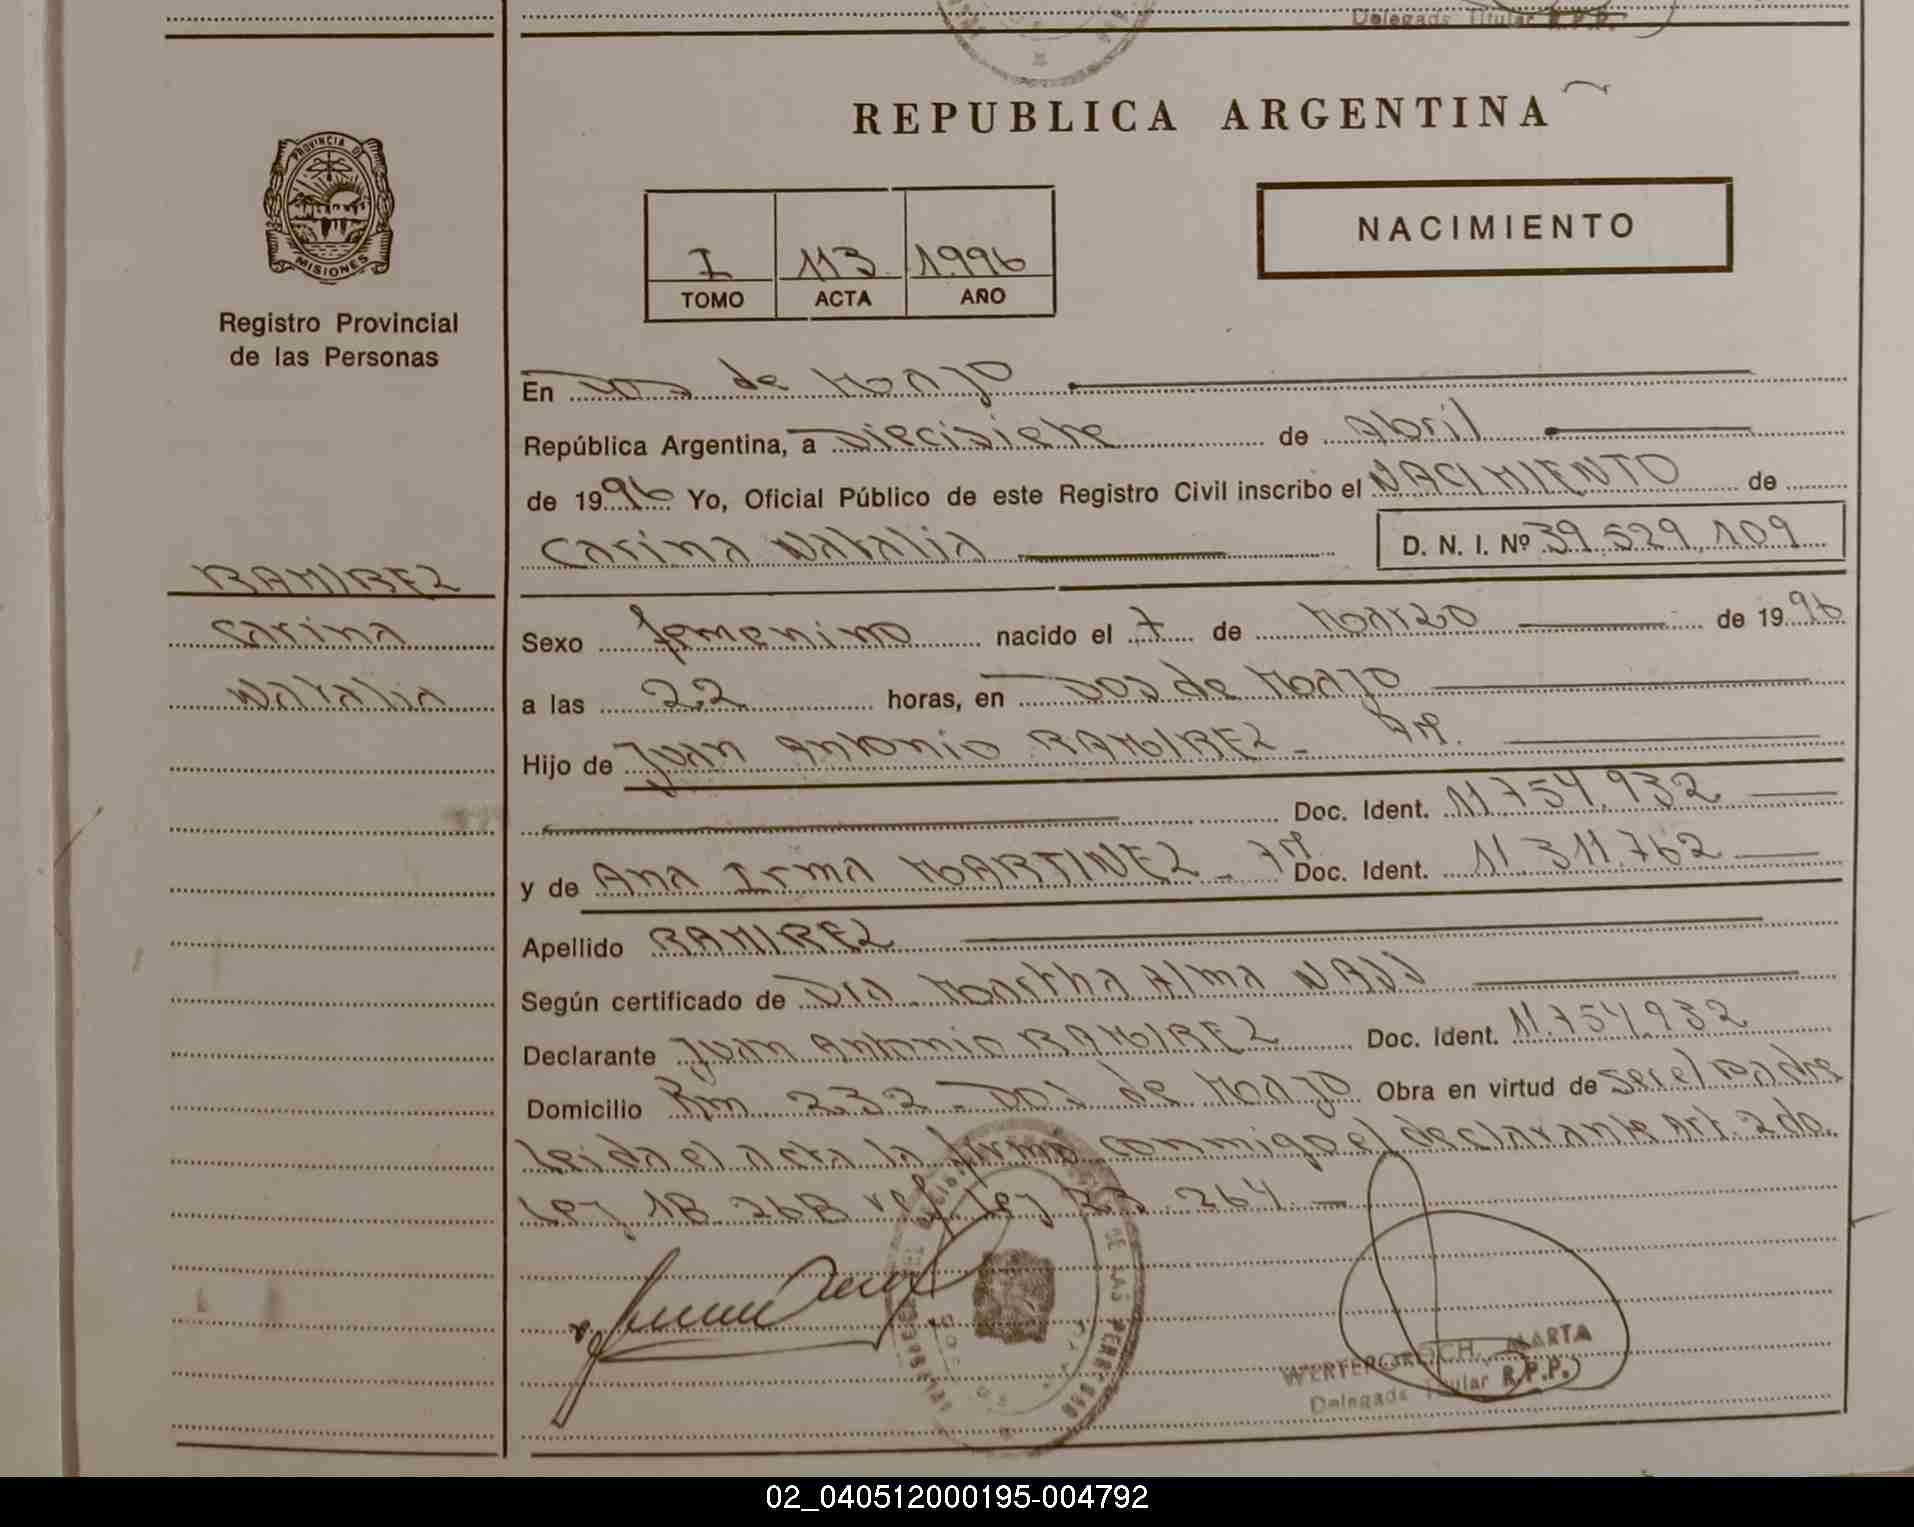 Delegada Titular R.P.P.
REPUBLICA ARGENTINA
PROVINCIA DE
MISIONES
Registro Provincial
de las Personas
NACIMIENTO
I 113 1996
TOMO ACTA AÑO
En Dos de Mayo
República Argentina, a Diecisiete de Abril
de 1996 Yo, Oficial Público de este Registro Civil inscribo el NACIMIENTO de
Carina Natalia D. N. I. Nº 39.529.109
RAMIREZ
Carina
Natalia
Sexo femenino nacido el 7 de Marzo de 1996
a las 22 horas, en Dos de Mayo
Hijo de Juan Antonio RAMIREZ - Arg.
Doc. Ident. 11.754.932
y de Ana Irma MARTINEZ - Doc. Ident. 11.311.762
Apellido RAMIREZ
Según certificado de Dra. Martha Alma
Declarante Juan Antonio RAMIREZ Doc. Ident. 11.754.932
Domicilio Km 232 - Dos de Mayo Obra en virtud de ser el padre
Leida el acta la firma conmigo el declarante Art. 2do.
Ley 18.268 ref. Ley 22.264 -
DE LAS PERSONAS
MARTA
Delegada Titular R.P.P.
02_040512000195-004792